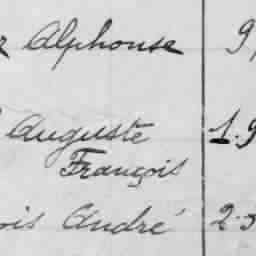 Alphonse 9
Auguste 1.9
François
ois André 2.